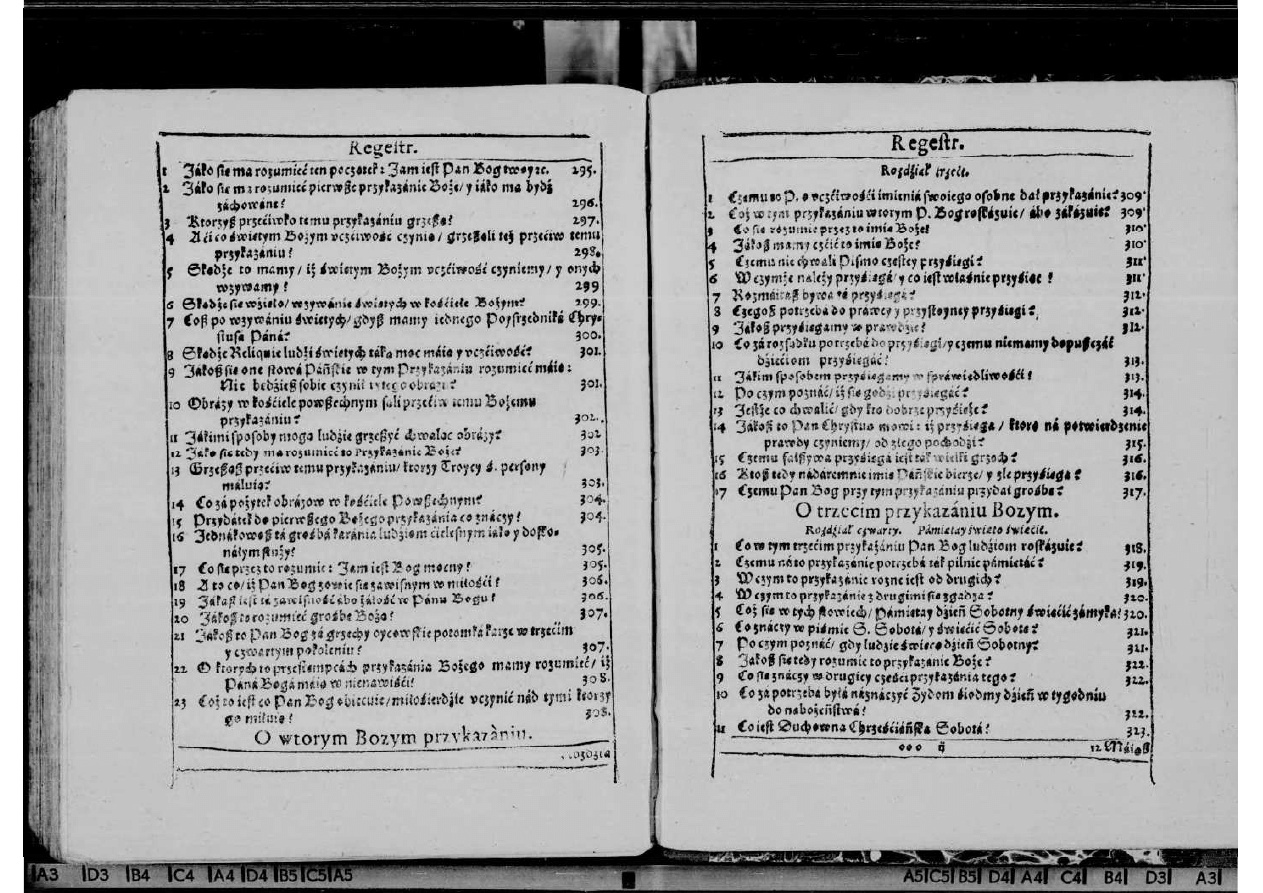 Regestr.
1 Jáko sie ma rozumieć ten początek: Jam iest Pan Bog twoy ꝛc. 295.
2 Jáko sie ma rozumieć pierwsze przykazánie Boże/ y iáko ma bydź
záchowane? 296.
3 Ktorzysz przećiwko temu przykazániu grzeszą? 297.
4 A ći co świętym Bożym vczćiwość czynią/ grzesząli też przećiw temu
przykazániu? 298.
5 Skądże to mamy/ iż świętym Bożym vczćiwość czyniemy/ y onych
wzywamy? 299
6 Skądże sie wzięło/ wzywánie świętych w kośćiele Bożym? 299.
7 Cosz po wzywániu świętych/ gdyż mamy iednego Poysrzedniká Chry-
stusa Páná? 300.
8 Skądże Reliquie ludźi świętych táką moc máią y vczćiwość? 301.
9 Jákosz sie one słowá Páńskie w tym Przykazániu rozumieć máią:
Nie będziesz sobie czynił rytego obrázu? 301.
10 Obrázy w kośćiele powszechnym sąli przećiw temu Bożemu
przykazániu? 302.
11 Jákimi sposoby mogą ludzie grzeszyć chwaląc obrázy? 302
12 Jáko sie tedy ma rozumieć to Przykazánie Boże? 303.
13 Grzeszą przećiw temu przykazániu/ ktorzy Troycy ś. persony
máluią? 303.
14 Co zá pożytek obrázow w kośćiele Powszechnym? 304.
15 Przydátek do pierwszego Bożego przykazánia co znáczy? 304.
16 Jednákowosz tá grośbá karánia ludziom ćielesnym iáko y dosko-
náłym służy? 305.
17 Co sie przez to rozumie: Jam iest Bog mocny? 305.
18 A to co/ iż Pan Bog zowie sie zawisnym w miłośći? 306.
19 Jákasz iest tá zawisność ábo żáłość w Pánu Bogu? 306.
20 Jákosz to rozumieć grośbę Bożą? 307.
21 Jákosz to Pan Bog zá grzechy oycowskie potomká karze w trzećim
y czwartym pokoleniu? 307.
22 O ktorych to przestempcách przykazánia Bożego mamy rozumieć/ iż
Páná Bogá máią w nienawiśći? 308.
23 Coż to iest co Pan Bog obiecuie/ miłośierdzie vczynić nád tymi ktorzy
go miłuią? 308.
O wtorym Bozym przykazániu.
Rozdzia
Regestr.
Rozdźiał trzeći.
1 Czemu to P. o vczćiwośći imieniá swoiego osobne dał przykazánie? 309.
2 Coż w tym przykazániu wtorym P. Bog roskázuie/ ábo zákázuie? 309.
3 Co sie rozumie przez to imię Boże? 310.
4 Jákosz mamy czćić to imię Boże? 310.
5 Czemu nie chwali Pismo częstey przyśięgi? 311.
6 W czymże należy przyśięgá/ y co iest właśnie przyśiąc? 311.
7 Rozmáitasz bywa tá przyśięgá? 312.
8 Czegosz potrzebá do práwey y przystoyney przyśięgi? 312.
9 Jákosz przyśięgamy w prawdzie? 312.
10 Co zá rozsądku potrzebá do przyśięgi/ y czemu niemamy dopuszczáć
dźiećiom przyśięgáć? 313.
11 Jákim sposobem przyśięgamy w spráwiedliwośći? 313.
12 Po czym poznáć/ iż sie godźi przyśięgáć? 314.
13 Jestże co chwalić/ gdy kto dobrze przyśięże? 314.
14 Jákosz to Pan Chrystus mowi: iż przyśięgá/ ktorą ná potwierdzenie
prawdy czyniemy/ od złego pochodźi? 315.
15 Czemu fałszywa przyśięgá iest ták wielki grzech? 316.
16 Ktosz tedy nádaremnie imię Páńskie bierze/ y źle przyśięga? 316.
17 Czemu Pan Bog przy tym przykazániu przydał grośbę? 317.
O trzecim przykazániu Bozym.
Rozdźiał czwarty. Pámiętay święto święćić.
1 Co w tym trzećim przykazániu Pan Bog ludziom roskázuie? 318.
2 Czemu ná to przykazánie potrzebá ták pilnie pámiętáć? 319.
3 W czym to przykazánie rozne iest od drugich? 319.
4 W czym to przykazánie z drugimi sie zgadza? 320.
5 Coż sie w tych słowiech/ Pámiętay dźień Sobotny święćić zámyka? 320.
6 Co znáczy w piśmie S. Sobotá/ y święćić Sobotę? 321.
7 Po czym poznáć/ gdy ludzie święcą dźień Sobotny? 321.
8 Jákosz sie tedy rozumie to przykazánie Boże? 322.
9 Co sie znáczy w drugiey częśći przykazánia tego? 322.
10 Co zá potrzebá byłá náznáczyć Żydom śiodmy dźień w tygodniu
do nabożeństwá? 322.
11 Co iest Duchowna Chrześćiáńska Sobotá? 323.
ooo ij 12 Máiąsz
A3 D3 B4 C4 A4 D4 B5 C5 A5
A5 C5 B5 D4 A4 C4 B4 D3 A3